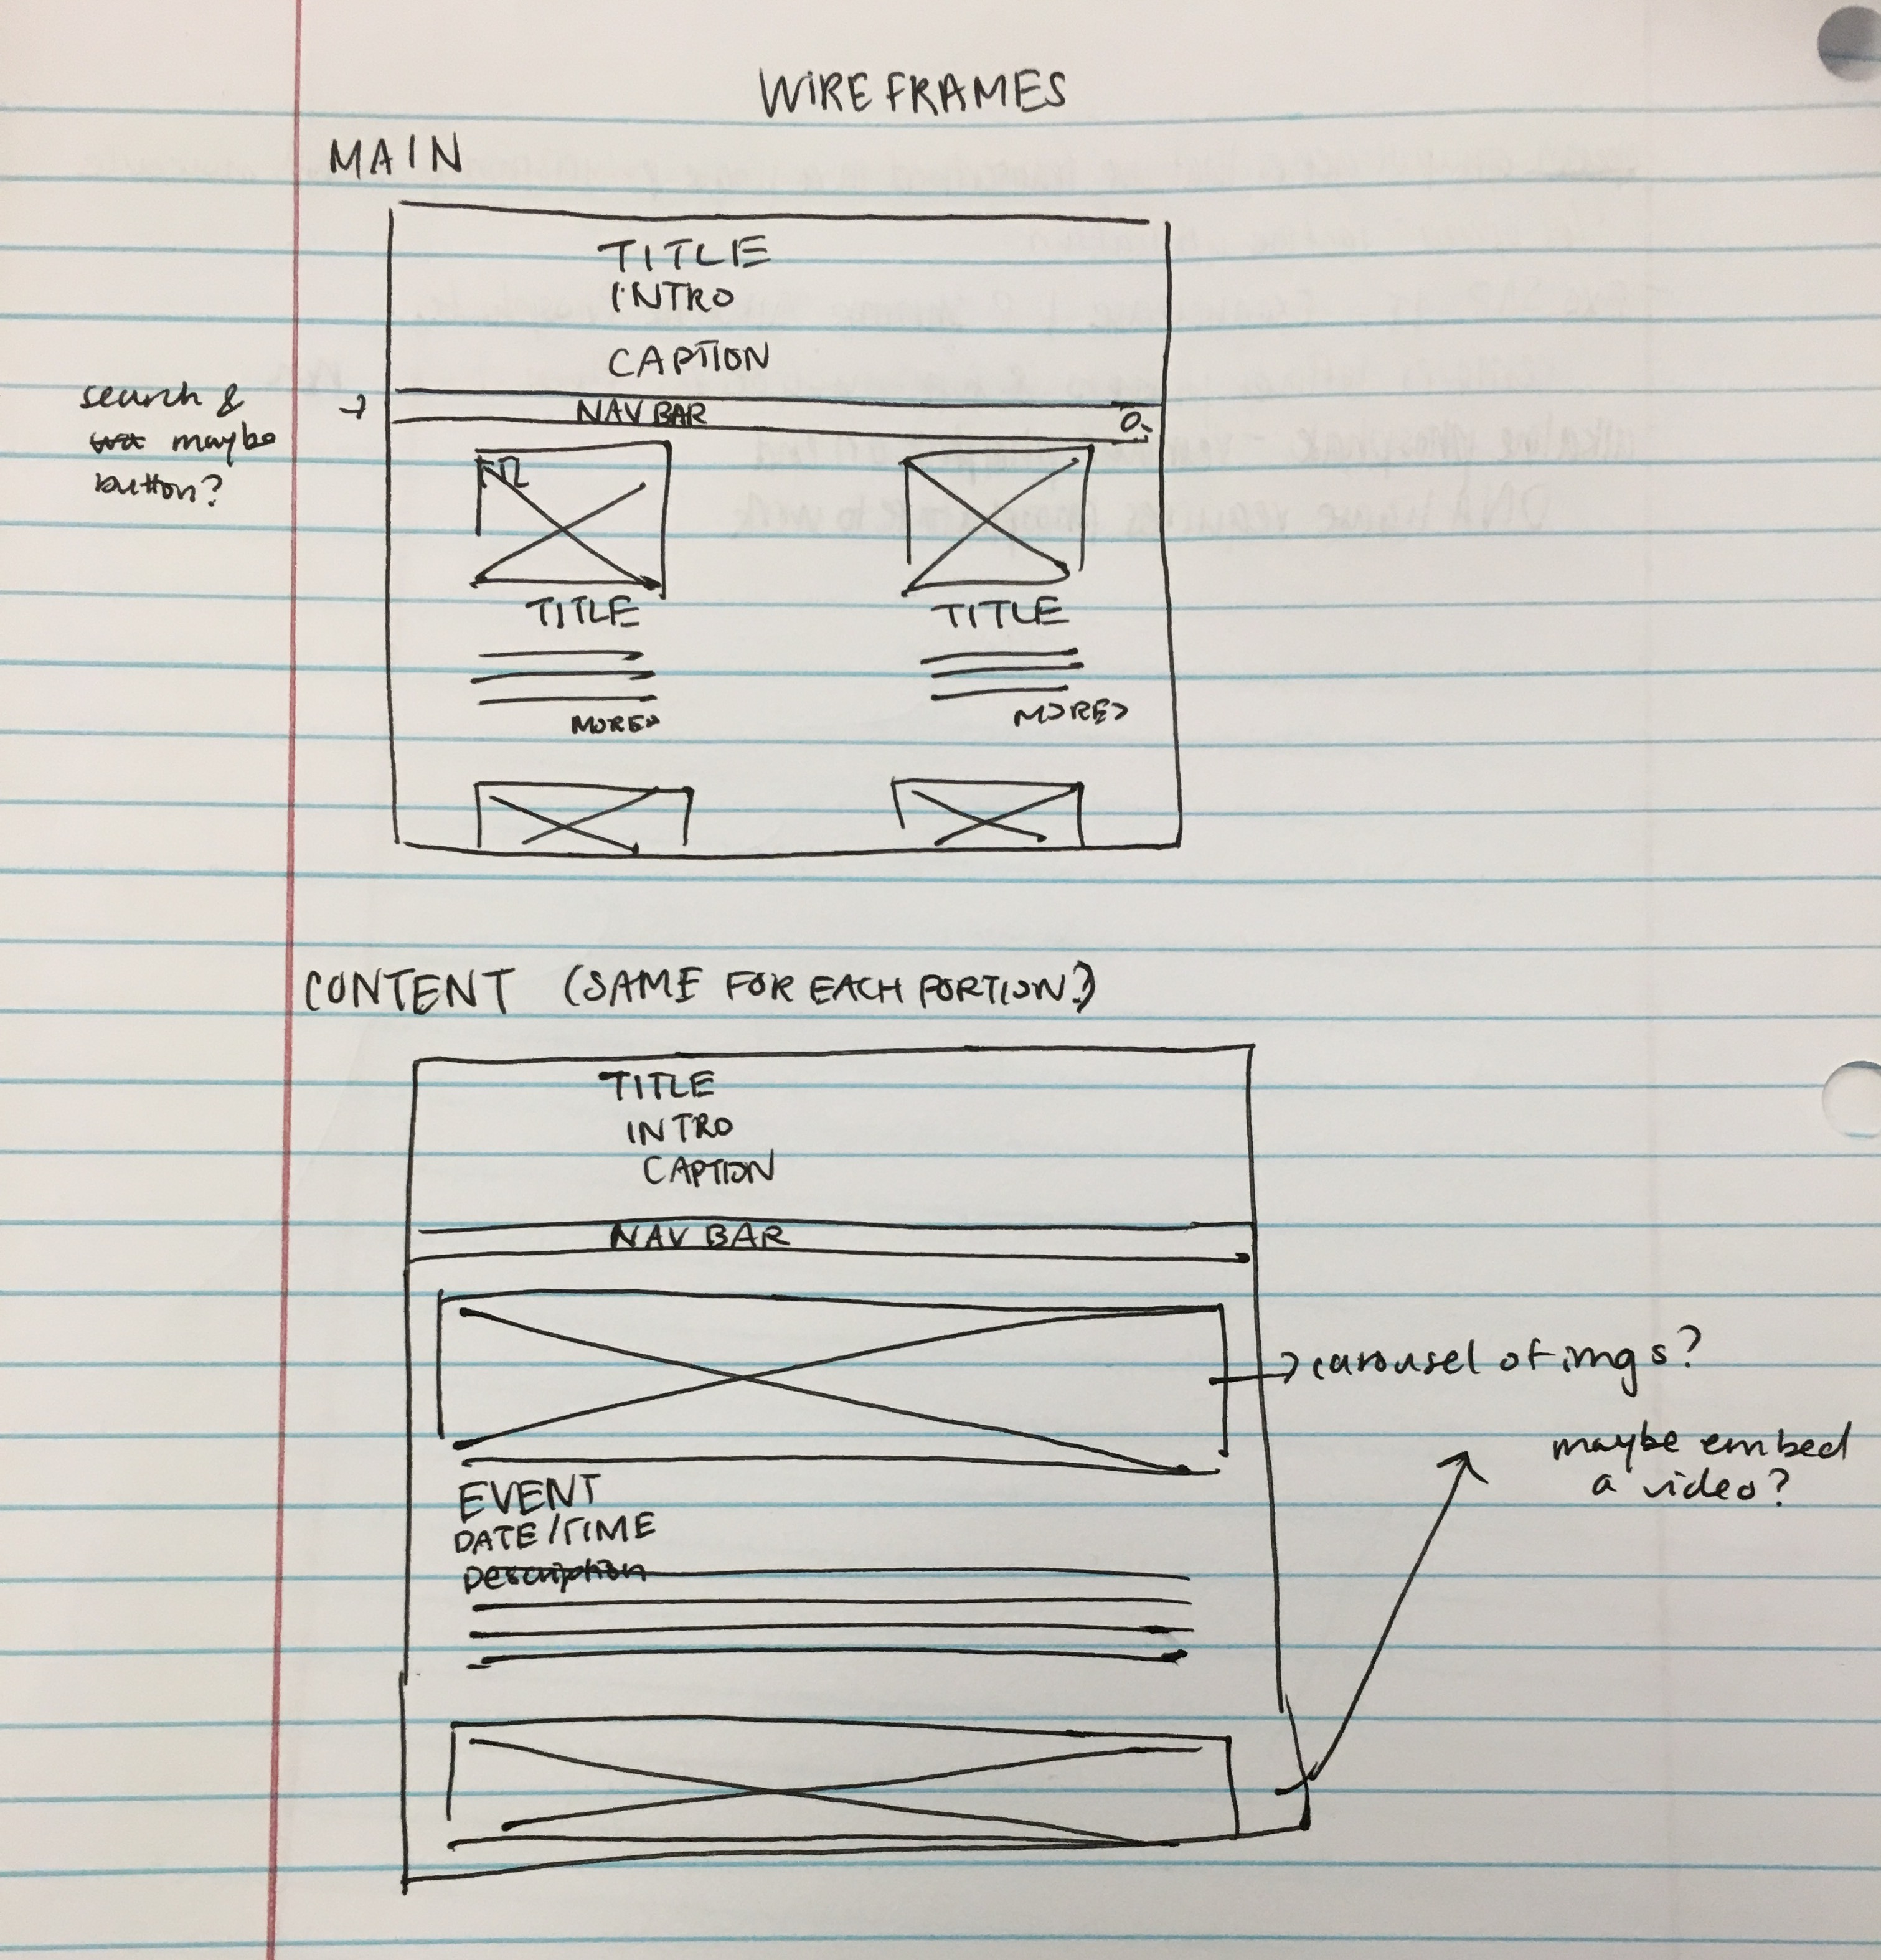 WIREFRAMES
MAIN
TITLE
INTRO
CAPTION
search &
maybe
button?
NAV BAR
TITLE
TITLE
MORE>
MORE>
CONTENT (SAME FOR EACH PORTION?)
TITLE
INTRO
CAPTION
NAV BAR
carousel of imgs?
maybe embed
a video?
EVENT
DATE/TIME
Description